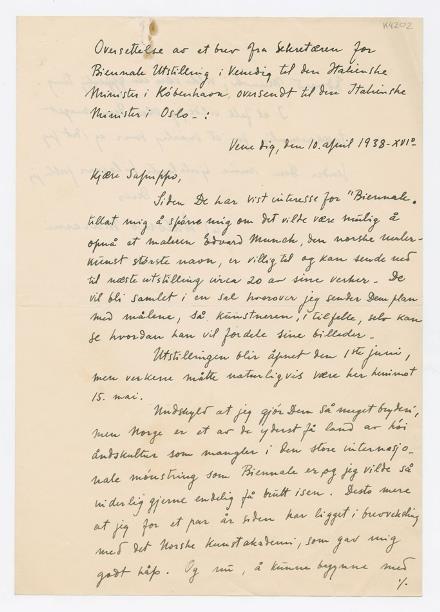 K4202
Oversettelse av et brev fra Sekretæren for
Biennale Utstilling i Venedig til den Italienske
Minister i København, oversendt til den Italienske
Minister i Oslo -:
Venedig, den 10. april 1938-XVIº
Kjære Sapuppo,
Siden De har vist interesse for "Biennale",
tillat mig å spørre mig om det vilde være mulig å
opnå at maleren Edvard Munch, den norske maler-
kunst største navn, er villig til og kan sende ned
til næste utstilling circa 20 av sine verker. - De
vil bli samlet i en sal hvorover jeg sender Dem plan
med målene, så kunstneren, i tilfelle, selv kan
se hvordan han vil fordele sine billeder. -
Utstillingen blir åpnet den 1ste juni,
men verkerne måtte naturligvis være her henimot
15. mai.
Undskyld at jeg gjör Dem så meget bryderi,
men Norge er et av de yderst få land av höi
åndskultur som mangler i den store internasjo-
nale mönstring som Biennale er, og jeg vilde så
inderlig gjerne endelig få brutt isen. Desto mere
at jeg for et par år siden har ligget i brevveksling
med det Norske Kunstakademi, som gav mig
godt håp. Og nu, å kunne begynne med
·/.